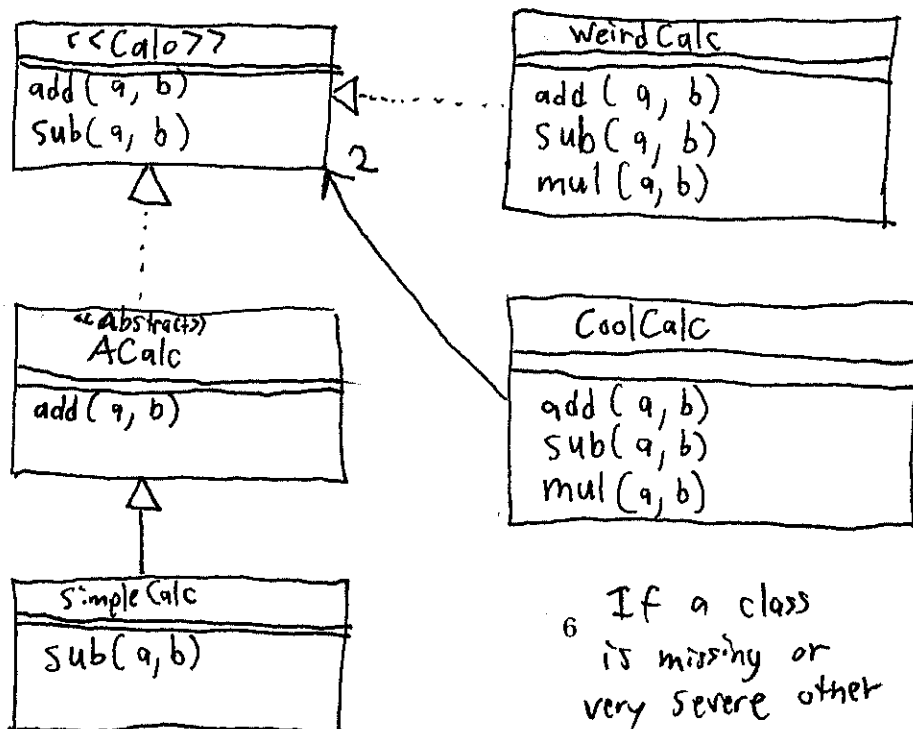 <<Calc>>
add(a, b)
sub(a, b)
2
WeirdCalc
add(a, b)
sub(a, b)
mul(a, b)
<<Abstract>>
ACalc
add(a, b)
CoolCalc
add(a, b)
sub(a, b)
mul(a, b)
SimpleCalc
sub(a,b)
6
If a class
is missing or
very severe other